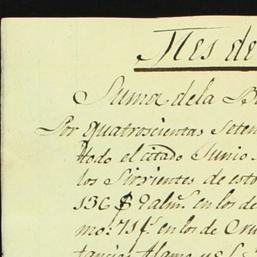 Mes de
Suma de la B
Por quatrocientas Seten
tto do el citado Junio
los Sirvientes de est
136 $ 2 al en los de
mo: 71 f. en los de Cru
tancia Alamo y el S